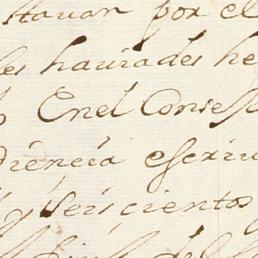 tauan por el
les hauiades he
Enel Conse
diencia escriu
y seiscientos